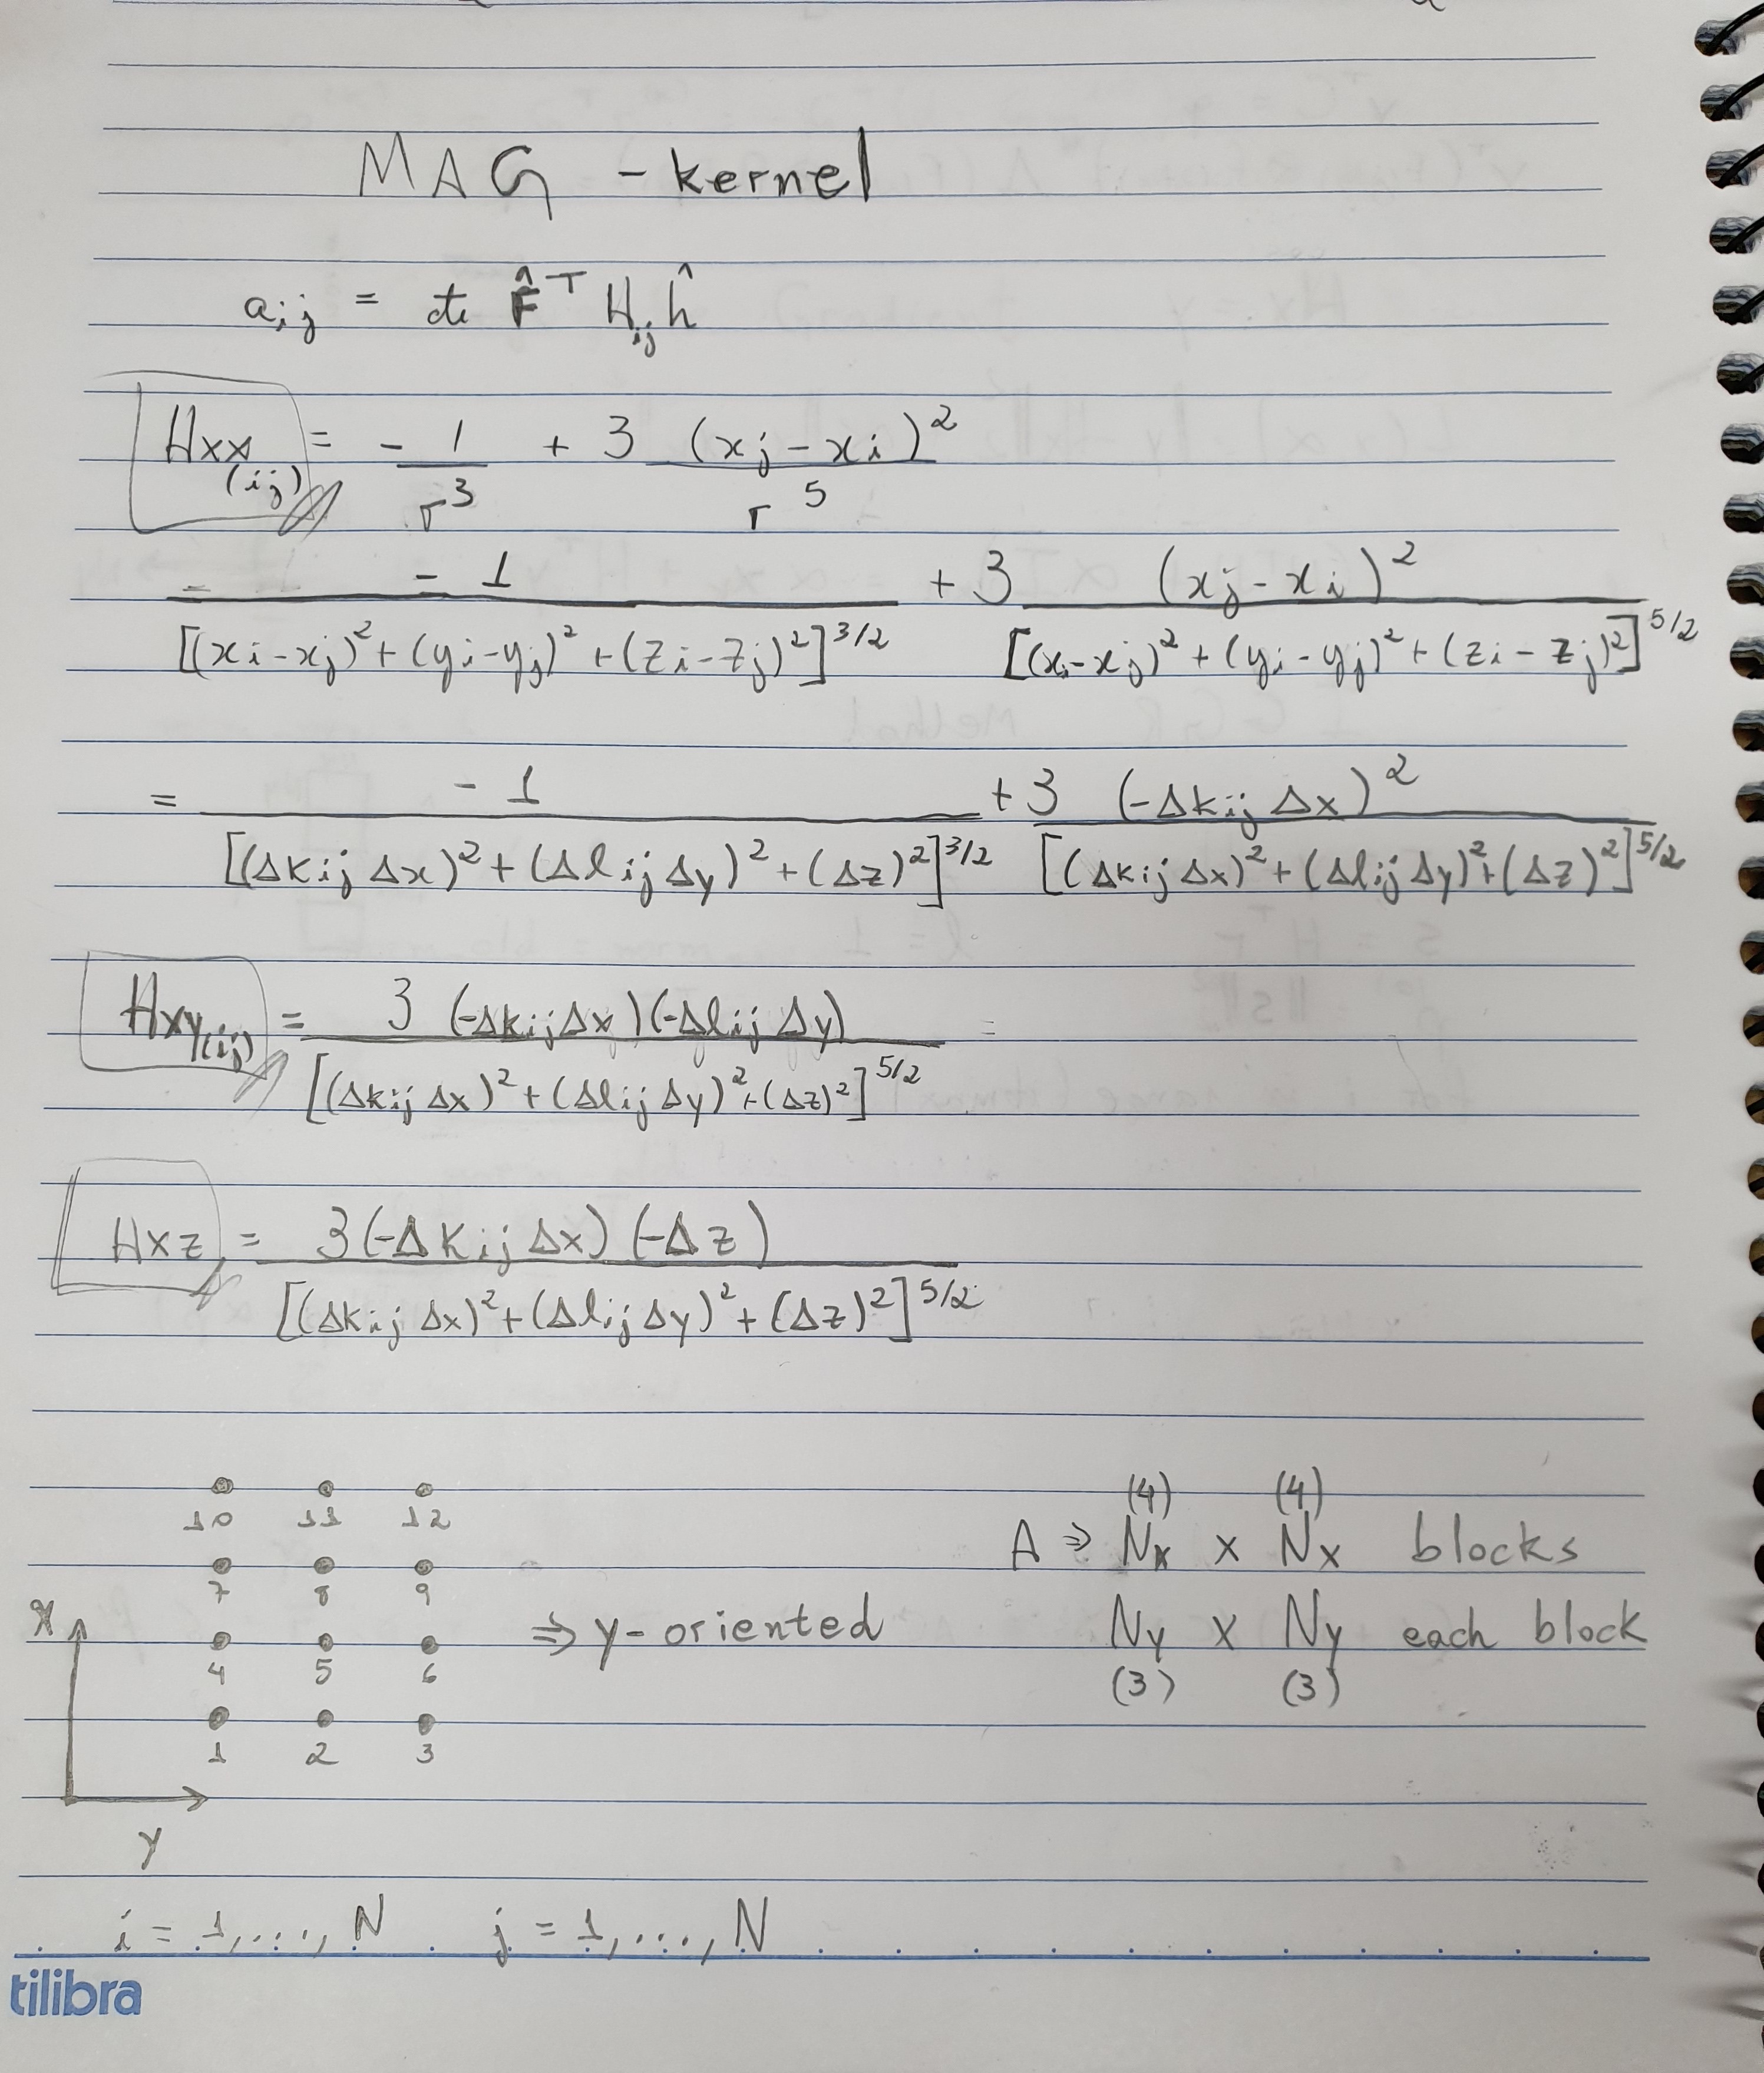 MAG - kernel
aij = cte F̂ᵀ Hij ĥ
Hxx(ij) = - 1/r³ + 3 (xj - xi)²/r⁵
= -1/[(xi-xj)² + (yi-yj)² + (zi-zj)²]^3/2 + 3 (xj-xi)²/[(xi-xj)² + (yi-yj)² + (zi-zj)²]^5/2
= -1/[(Δkij Δx)² + (Δlij Δy)² + (Δz)²]^3/2 + 3 (-Δkij Δx)²/[(Δkij Δx)² + (Δlij Δy)² + (Δz)²]^5/2
Hxy(ij) = 3 (-Δkij Δx)(-Δlij Δy)/[(Δkij Δx)² + (Δlij Δy)² + (Δz)²]^5/2 =
Hxz = 3(-Δkij Δx)(-Δz)/[(Δkij Δx)² + (Δlij Δy)² + (Δz)²]^5/2
10 11 12
7 8 9
4 5 6
1 2 3
x
y
⇒ y-oriented
(4) (4)
A ⇒ Nx x Nx blocks
Ny x Ny each block
(3) (3)
i = 1,...., N j = 1,...., N
tilibra